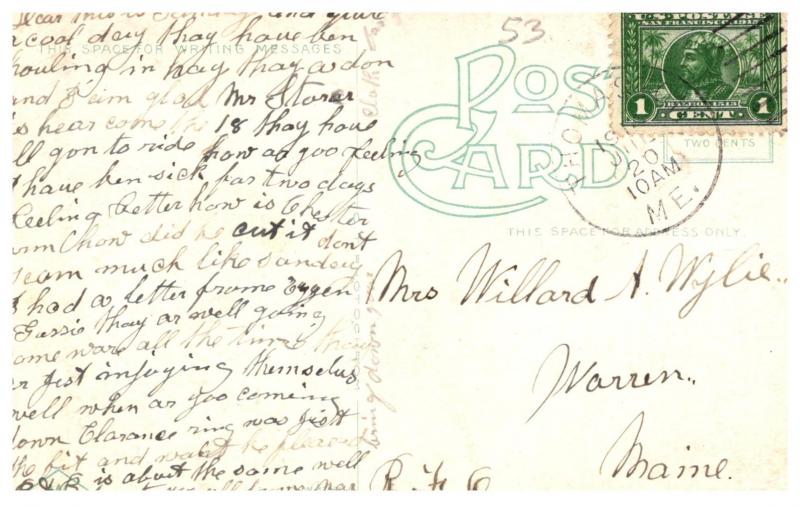 53
U.S. POSTAGE
SAN FRANCISCO
1 CENT 1
THIS SPACE FOR WRITING MESSAGES
POST
CARD
TWO CENTS
20
10 AM
ME.
THIS SPACE FOR ADDRESS ONLY.
Dear this is and quite
a cool day thay have ben
houling in hay thay ar don
and I eim glad Mr Storer
is hear come the 18 thay have
ll gon to ride how ar yoo feeling
I have ben sick for two days
feeling better how is Chester
arm (how did he cut it dont
seam much like sunday
I had a letter frome
Gussie thay ar well going
ome ware all the time thay
er jist injoying themselvs
well when ar yoo coming
down Clarance ring was jistt
the fit and he pleased
is about the same well
Mrs Willard A. Wylie.
Warren,
Maine.
R. F. D.